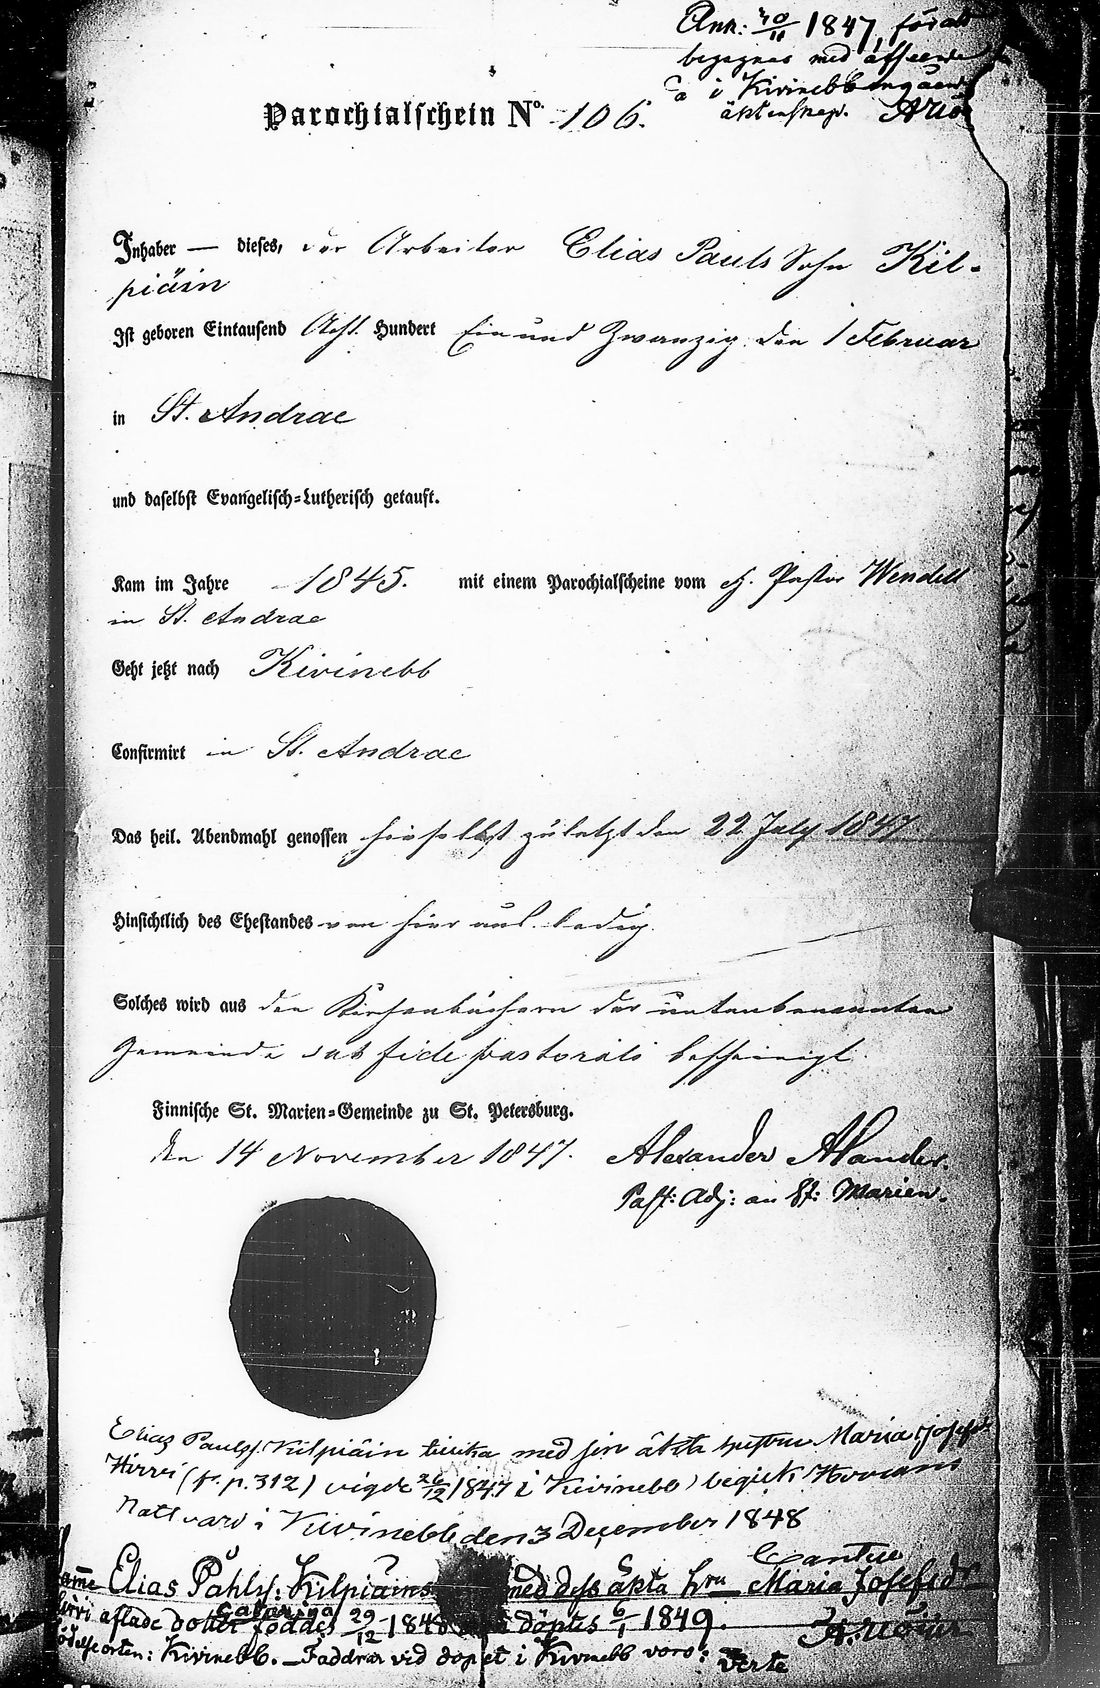 Ank: 20/11 1847, för att
begagnas med afseende
å i Kivinebb ingående
äktenskap.
Parochialschein No. 106.
Inhaber — dieses, der Arbeiter Elias Pauls Sohn Kil-
piäin
Ist geboren Eintausend Acht Hundert Ein und Zwanzig den 1 Februar
in St. Andrae
und daselbst Evangelisch-Lutherisch getauft.
Kam im Jahre 1845. mit einem Parochialscheine vom H. Pastor Wendell
in St. Andrae
Geht jetzt nach Kivinebb
Confirmirt in St. Andrae
Das heil. Abendmahl genossen hieselbst zuletzt den 22 July 1847
Hinsichtlich des Ehestandes von hier aus ledig.
Solches wird aus den Kirchenbüchern der untenbenannten
Gemeinde sub fide pastorali bescheinigt.
Finnische St. Marien-Gemeinde zu St. Petersburg.
den 14 November 1847. Alexander Alander.
Past: Adj: an St: Marien.
Elias Paulss: Kilpiäin med sin äkta hustru Maria Josefsdr
Hirvi (f. p. 312) vigde 26/12 1847 i Kivinebb) begick Herrans
Nattvard i Kivinebb den 3 December 1848
Elias Påhlss: Kilpiäins med dess äkta hru Maria Josefsdr
Hirvi aflade dotter Catarina föddes 29/12 1848 döptes 6/1 1849.
födelseorten: Kivinebb. — Faddrar vid dopet i Kivinebb voro: Verte